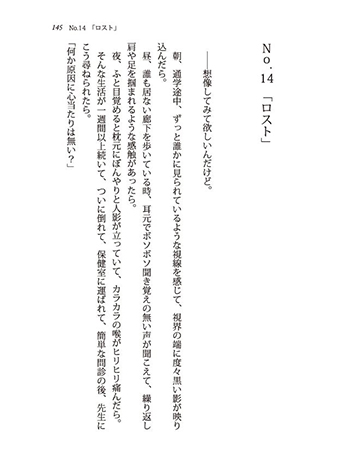 145 No.14 「ロスト」
No.14 「ロスト」
――想像してみて欲しいんだけど。
朝、通学途中、ずっと誰かに見られているような視線を感じて、視界の端に度々黒い影が映り
込んだら。
昼、誰も居ない廊下を歩いている時、耳元でボソボソ聞き覚えの無い声が聞こえて、繰り返し
肩や足を掴まれるような感触があったら。
夜、ふと目覚めると枕元にぼんやりと人影が立っていて、カラカラの喉がヒリヒリ痛んだら。
そんな生活が一週間以上続いて、ついに倒れて、保健室に運ばれて、簡単な問診の後、先生に
こう尋ねられたら。
「何か原因に心当たりは無い？」